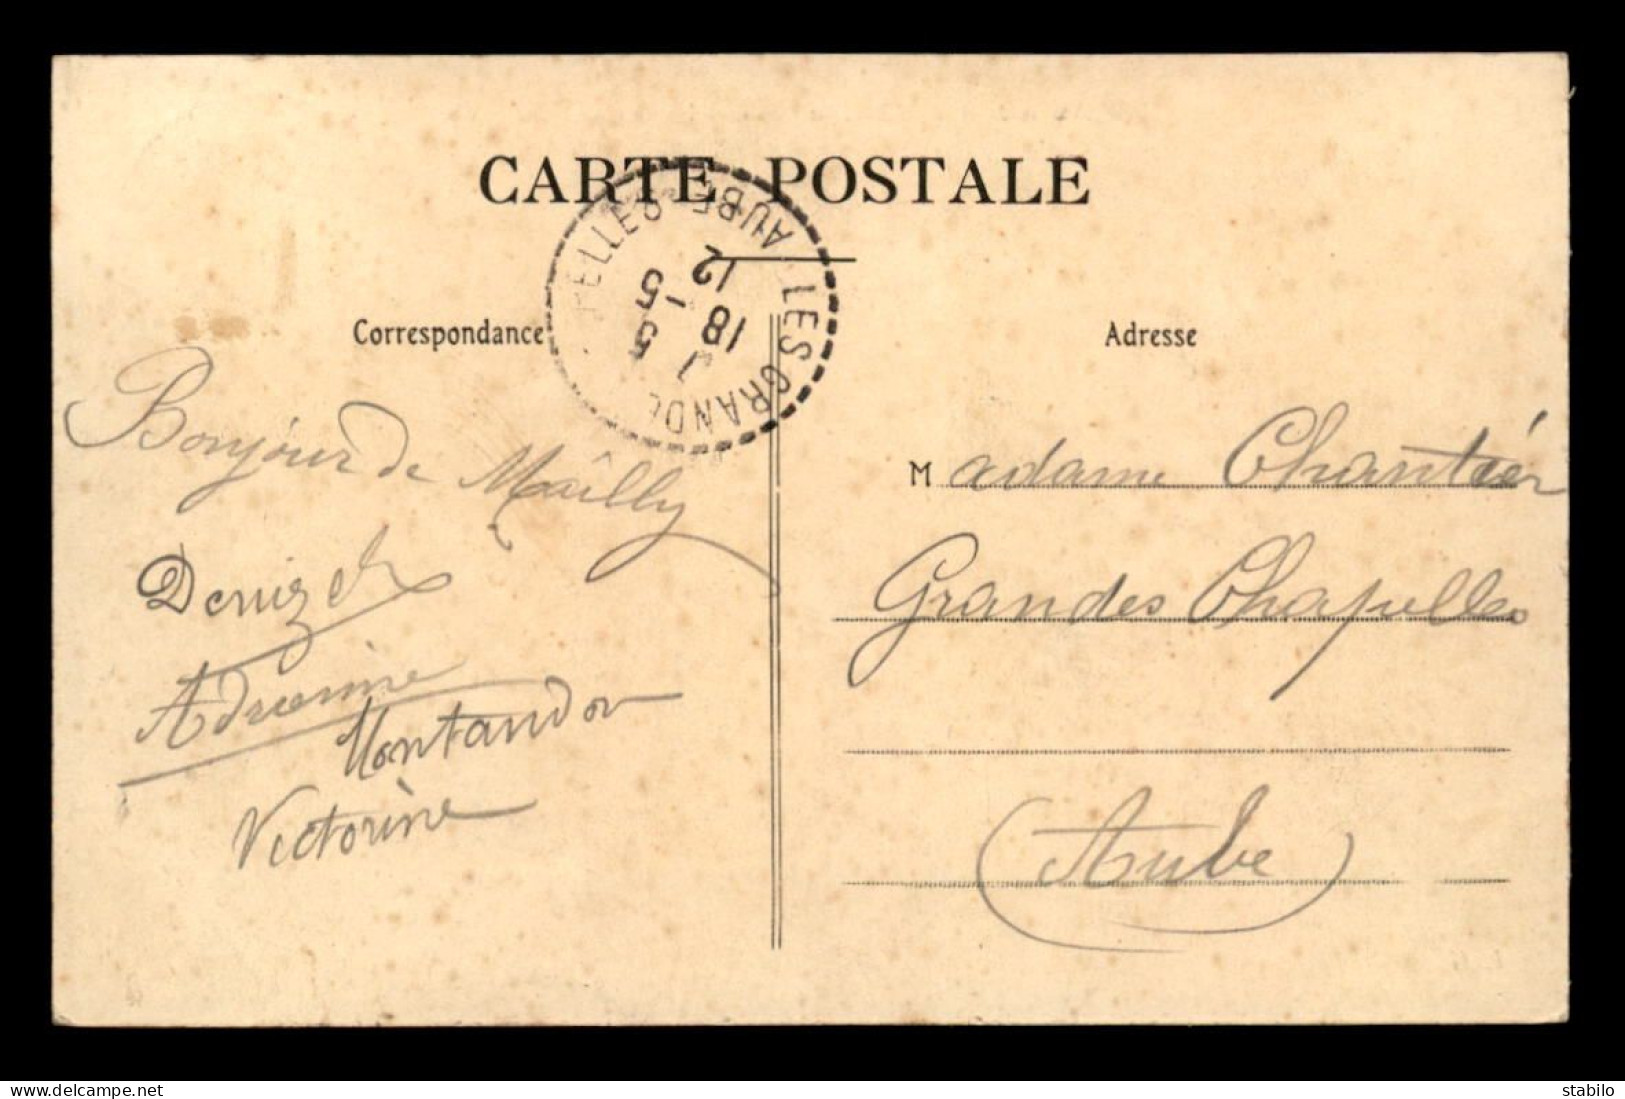 CARTE POSTALE
LES GRANDE ELLES AUBE
18
12
5
5
Correspondance
Adresse
Bonjour de Mailly
Adrienne
Montandon
Victorine
Madame Chantier
Grandes Chapelles
(Aube)
delcampe.net
stabilo